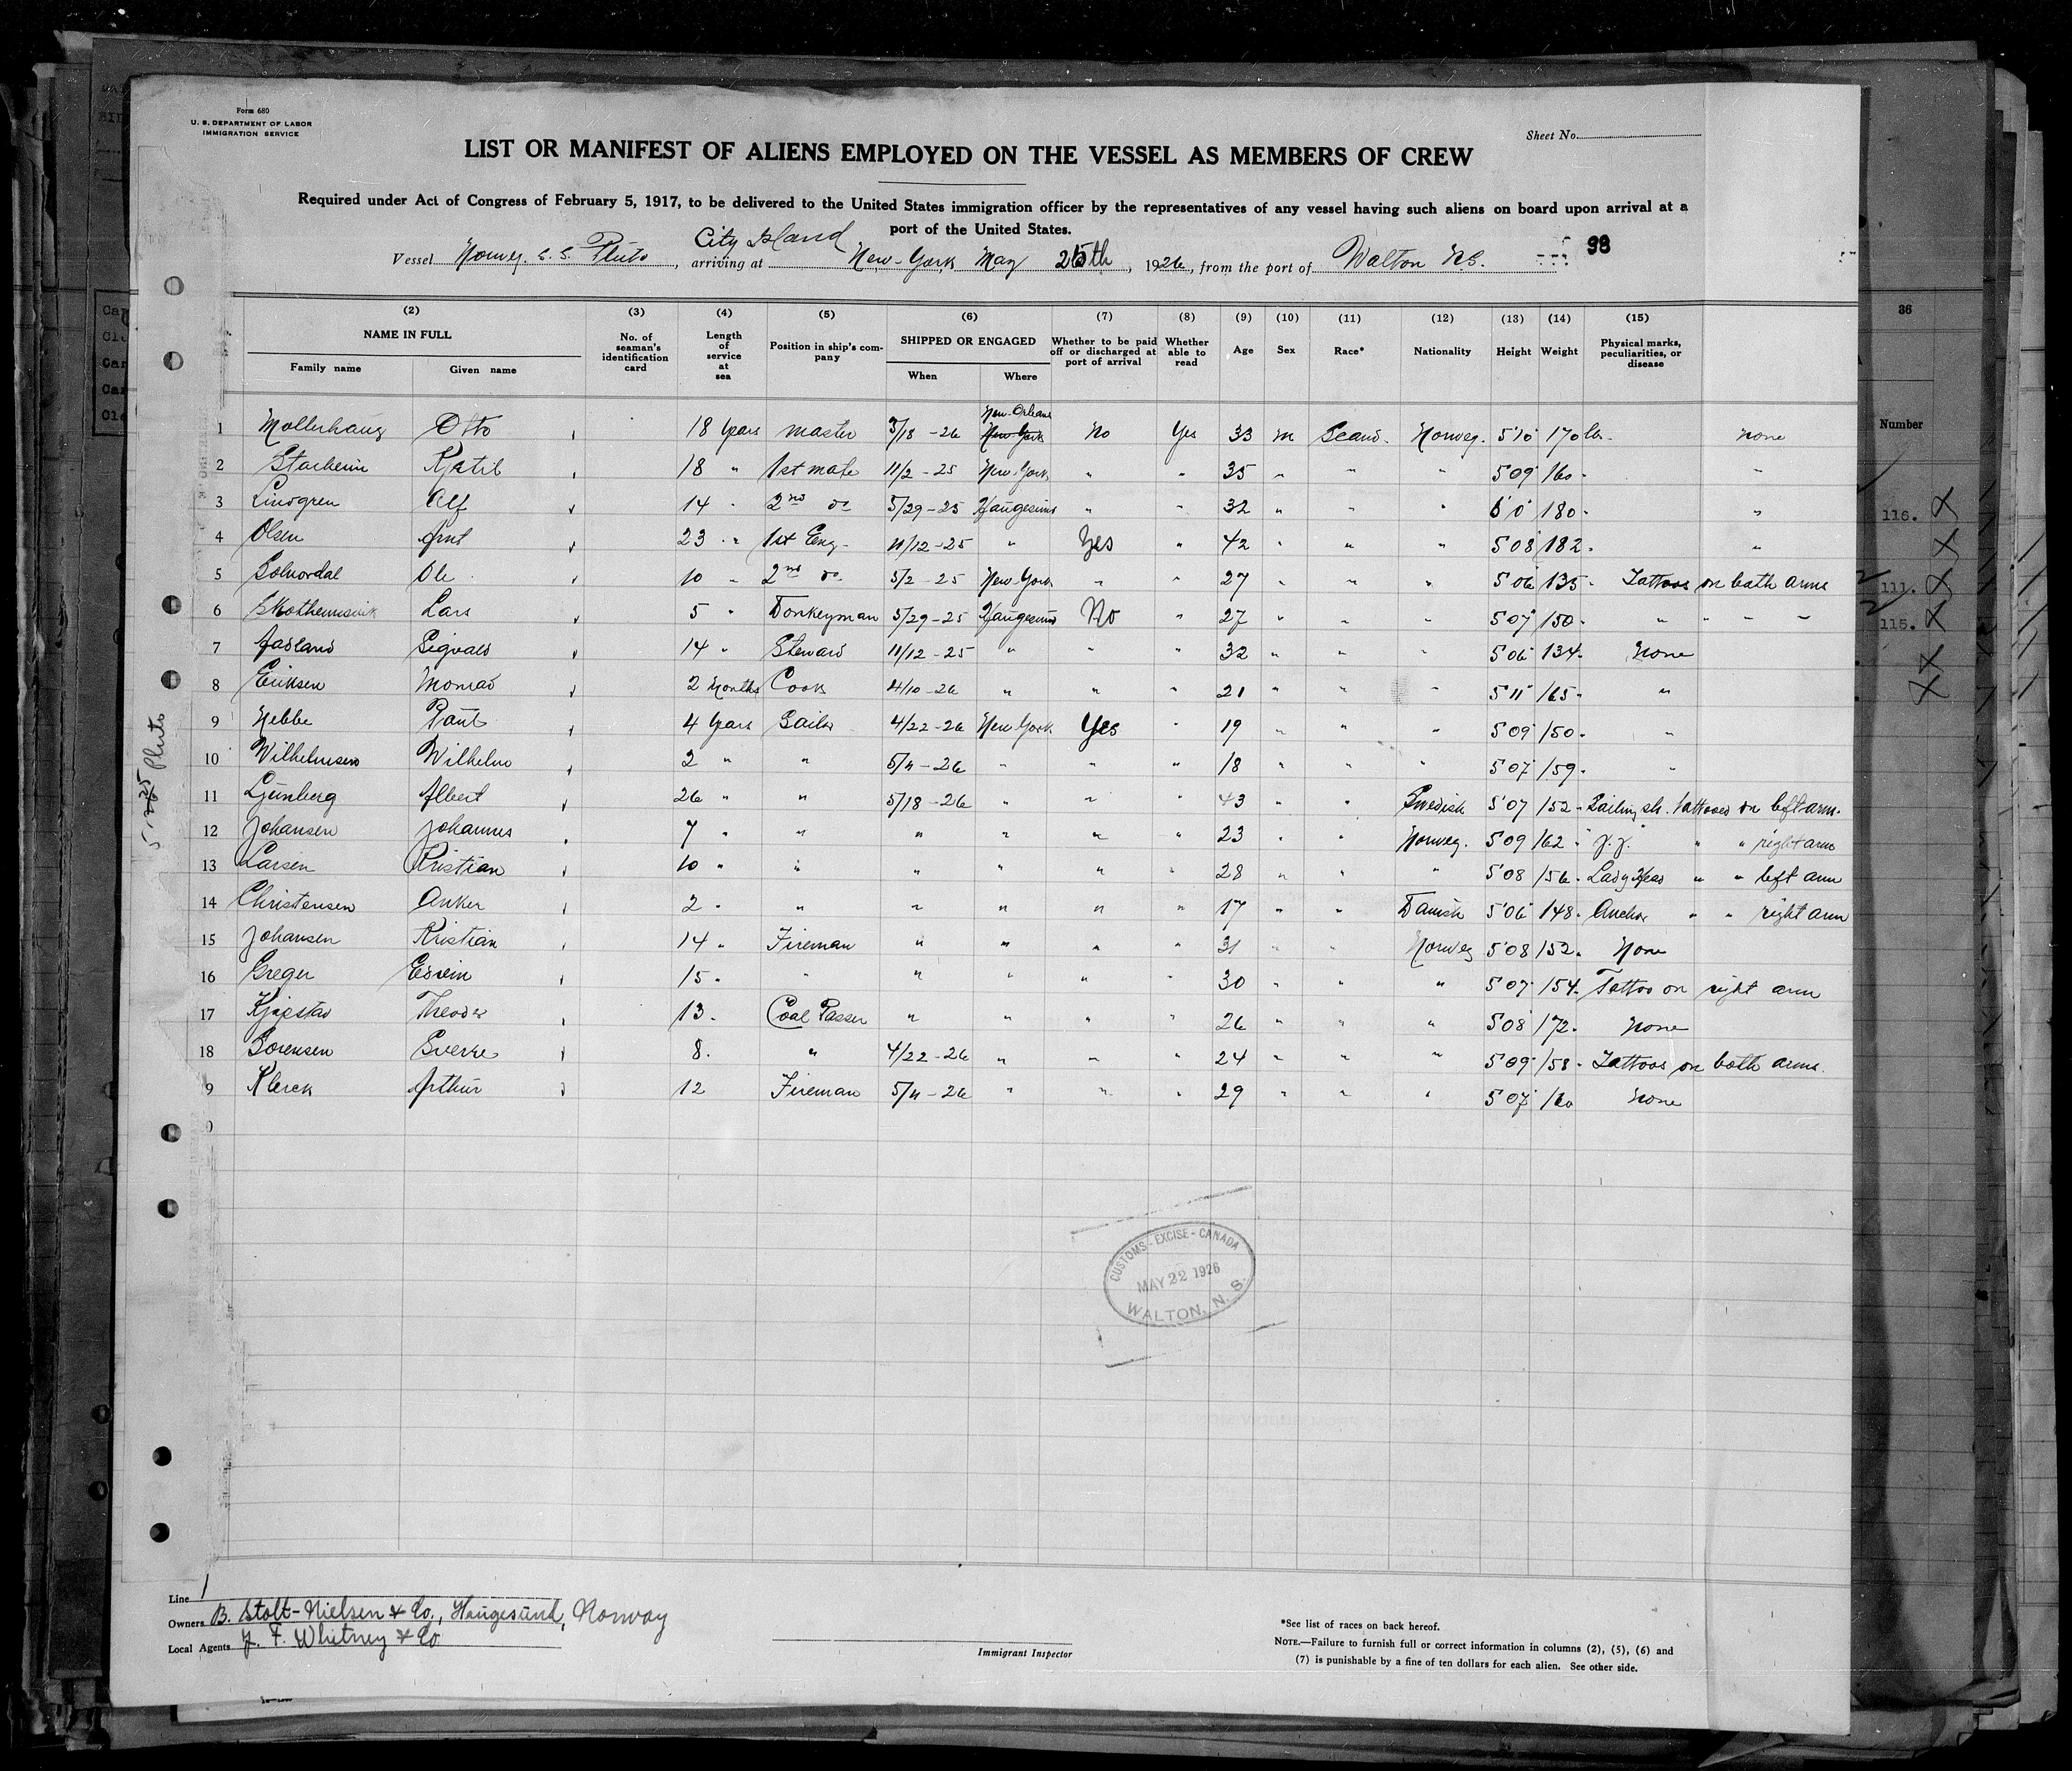 Form 680
U. S. DEPARTMENT OF LABOR
IMMIGRATION SERVICE
Sheet No.
LIST OR MANIFEST OF ALIENS EMPLOYED ON THE VESSEL AS MEMBERS OF CREW
Required under Act of Congress of February 5, 1917, to be delivered to the United States immigration officer by the representatives of any vessel having such aliens on board upon arrival at a
port of the United States.
City Island
Vessel Norweg. S. S. Pluto, arriving at New-York May 25th, 1926, from the port of Walton N.S. 98
(2) (3) (4) (5) (6) (7) (8) (9) (10) (11) (12) (13) (14) (15)
NAME IN FULL No. of seaman's identification card Length of service at sea Position in ship's company SHIPPED OR ENGAGED Whether to be paid off or discharged at port of arrival Whether able to read Age Sex Race* Nationality Height Weight Physical marks, peculiarities, or disease
Family name Given name When Where
New-Orleans
1 Mollerhaug Otto 18 Years master 3/18-26 New-York No Yes 33 m Scand. Norweg. 5'10" 170 lbs. none
2 Kjetil 18 " 1st mate 11/2-25 New-York " " 35 " " " 5'09" 160 "
3 Lindgren Alf 14 " 2nd do 5/29-25 Haugesund " " 32 " " " 6'0" 180 "
4 Olsen Arnt 23 " 1st Eng. 11/12-25 " Yes " 42 " " " 5'08" 182 "
5 Solvordal Ole 10 " 2nd do. 5/2-25 New-York " " 27 " " " 5'06" 135 Tattoos on both arms
6 Lars 5 " Donkeyman 5/29-25 Haugesund No " 27 " " " 5'07" 150 " " " "
7 Aasland Sigvald 14 " Steward 11/12-25 " " " 32 " " " 5'06" 134 None
8 Eriksen Monrad 2 Months Cook 4/10-26 " " " 21 " " 5'11" 165 "
9 Nebbe Paul 4 Years Sailor 4/22-26 New York Yes " 19 " " " 5'09" 150 "
10 Wilhelmsen Wilhelm 2 " " 5/11-26 " " " 18 " " " 5'07" 159 "
11 Ljunberg Albert 26 " " 5/18-26 " " " 43 " " Swedish 5'07 152 Sailing sh. tattooed on left arm.
12 Johansen Johannes 7 " " " " " " 23 " " Norweg. 5'09 162 "J.J." " " right arm
13 Larsen Kristian 10 " " " " " " 28 " " " 5'08 156 Lady Head " " left arm
14 Christensen Anker 2 " " " " " " 17 " " Danish 5'06" 148 Anchor " " right arm
15 Johansen Kristian 14 " Fireman " " " " 31 " " Norweg 5'08 152 None
16 Greger 15 " " " " " " 30 " " " 5'07" 154 Tattoo on right arm
17 Theodor 13 Coal Passer " " " " 26 " " " 5'08" 172 None
18 Sorensen Sverre 8 " 4/22-26 " " " 24 " " " 5'09" 158 Tattoos on both arms.
9 Klerck Arthur 12 Fireman 5/11-26 " " " 29 " " " 5'07" 160 None
0
Pluto
CUSTOMS-EXCISE-CANADA
MAY 22 1926
WALTON, N. S.
Line
Owners B. Stolt-Nielsen & Co., Haugesund, Norway
Local Agents J. F. Whitney & Co
Immigrant Inspector
*See list of races on back hereof.
NOTE.—Failure to furnish full or correct information in columns (2), (5), (6) and
(7) is punishable by a fine of ten dollars for each alien. See other side.
36
Number
116.
111.
115.